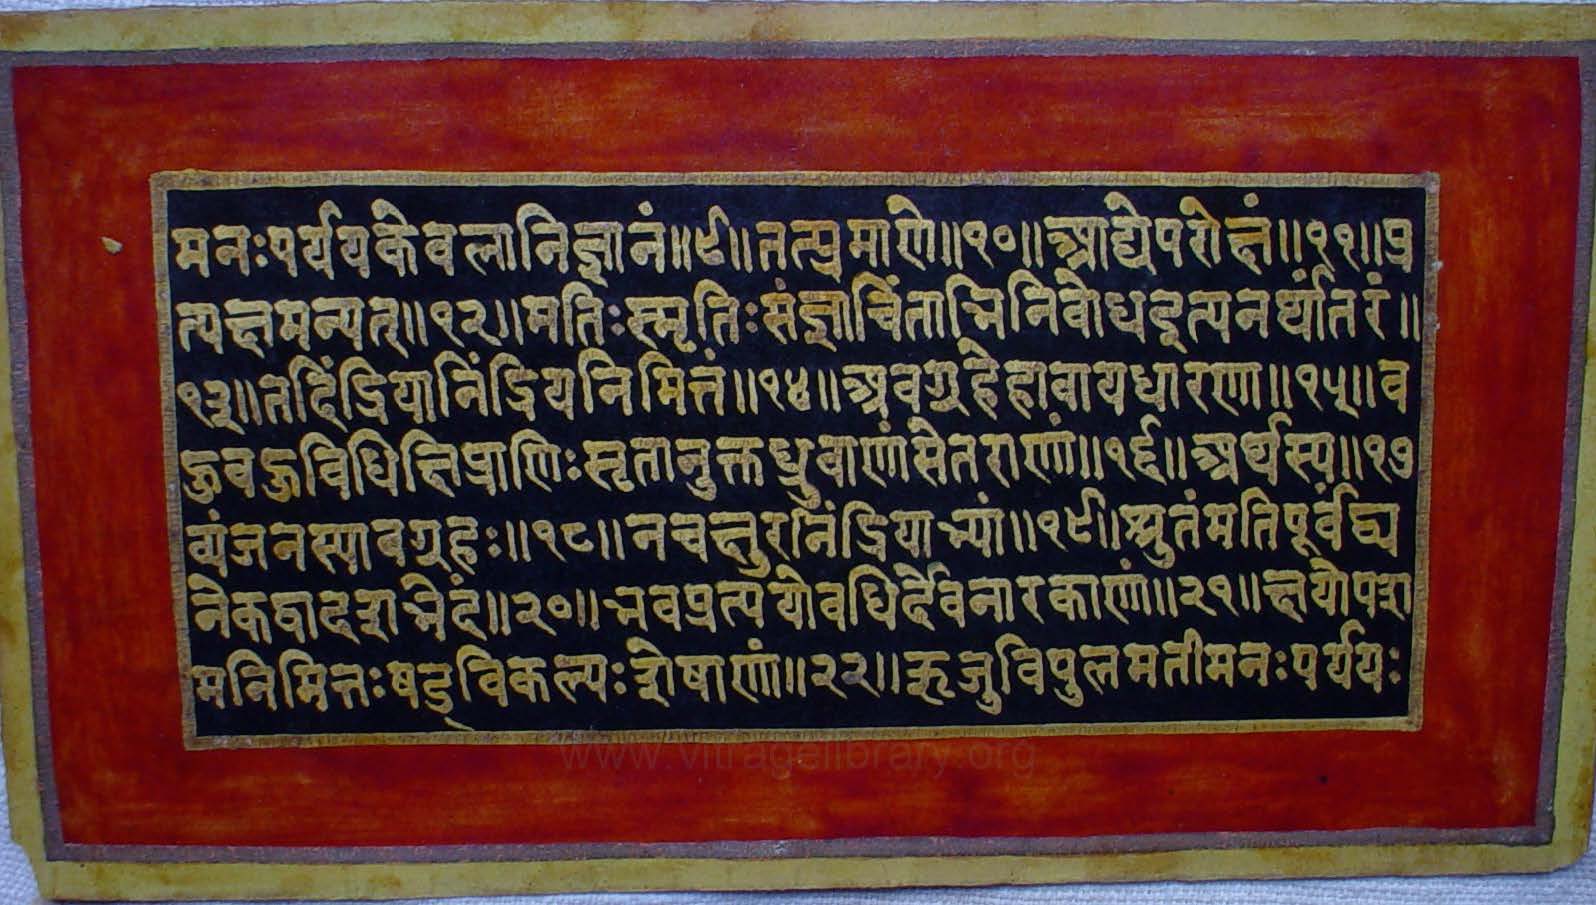 मनःपर्ययकेवलानिज्ञानं॥९॥तत्प्रमाणे॥१०॥आद्येपरोक्षं॥११॥प्र
त्यक्षमन्यत्॥१२॥मतिःस्मृतिःसंज्ञाचिंताभिनिवोधइत्यनर्थांतरं॥
१३॥तदिंद्रियानिंद्रियनिमित्तं॥१४॥अवग्रहेहावायधारणा॥१५॥व
हुवहुविधक्षिप्रानिःसृतानुक्तध्रुवाणांसेतराणां॥१६॥अर्थस्य॥१७
व्यंजनस्यावग्रहः॥१८॥नचक्षुरनिंद्रियाभ्यां॥१९॥श्रुतंमतिपूर्वंद्व्य
नेकद्वादशभेदं॥२०॥भवप्रत्ययोवधिर्देवनारकाणां॥२१॥क्षयोपश
मनिमित्तःषड्विकल्पःशेषाणां॥२२॥ऋजुविपुलमतीमनःपर्ययः
www.vitragelibrary.org